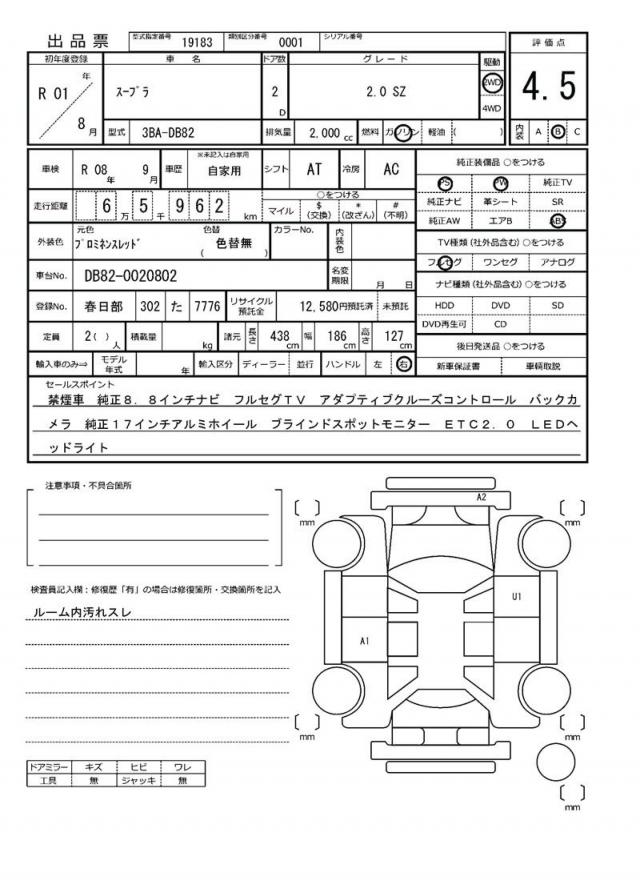 出品票 型式指定番号 19183 類別区分番号 0001 シリアル番号
評価点
4.5
内装 A B C
初年度登録 車名 ドア数 グレード 駆動
R 01 年 8 月
スープラ 2 D 2.0 SZ 2WD 4WD
型式 3BA-DB82 排気量 2,000 cc 燃料 ガソリン 軽油 ( )
車検 R 08 年 9 月 車歴 ※未記入は自家用 自家用 シフト AT 冷房 AC
走行距離 6 万 5 千 9 6 2 km
○をつける
マイル $ (交換) * (改ざん) # (不明)
外装色 元色 プロミネンスレッド 色替 色替無 ( ) カラーNo. 内装色
車台No. DB82-0020802 名変期限 月 日
登録No. 春日部 302 た 7776 リサイクル預託金 12,580円預託済 未預託
定員 2( ) 人 積載量 kg 諸元 長さ 438 cm 幅 186 cm 高さ 127 cm
輸入車のみ⇒ モデル年式 年 輸入区分 ディーラー 並行 ハンドル 左 右
純正装備品 ○をつける
PS PW 純正TV
純正ナビ 革シート SR
純正AW エアB ABS
TV種類(社外品含む) ○をつける
フルセグ ワンセグ アナログ
ナビ種類(社外品含む) ○をつける
HDD DVD SD
DVD再生可 CD
後日発送品 ○をつける
新車保証書 車輌取説
セールスポイント
禁煙車 純正8.8インチナビ フルセグTV アダプティブクルーズコントロール バックカ
メラ 純正17インチアルミホイール ブラインドスポットモニター ETC2.0 LEDヘ
ッドライト
注意事項・不具合箇所
検査員記入欄:修復歴「有」の場合は修復箇所・交換箇所を記入
ルーム内汚れスレ
ドアミラー キズ ヒビ ワレ
工具 無 ジャッキ 無
A2
[ ] mm
[ ] mm
U1
A1
[ ] mm
[ ] mm
[ ] mm